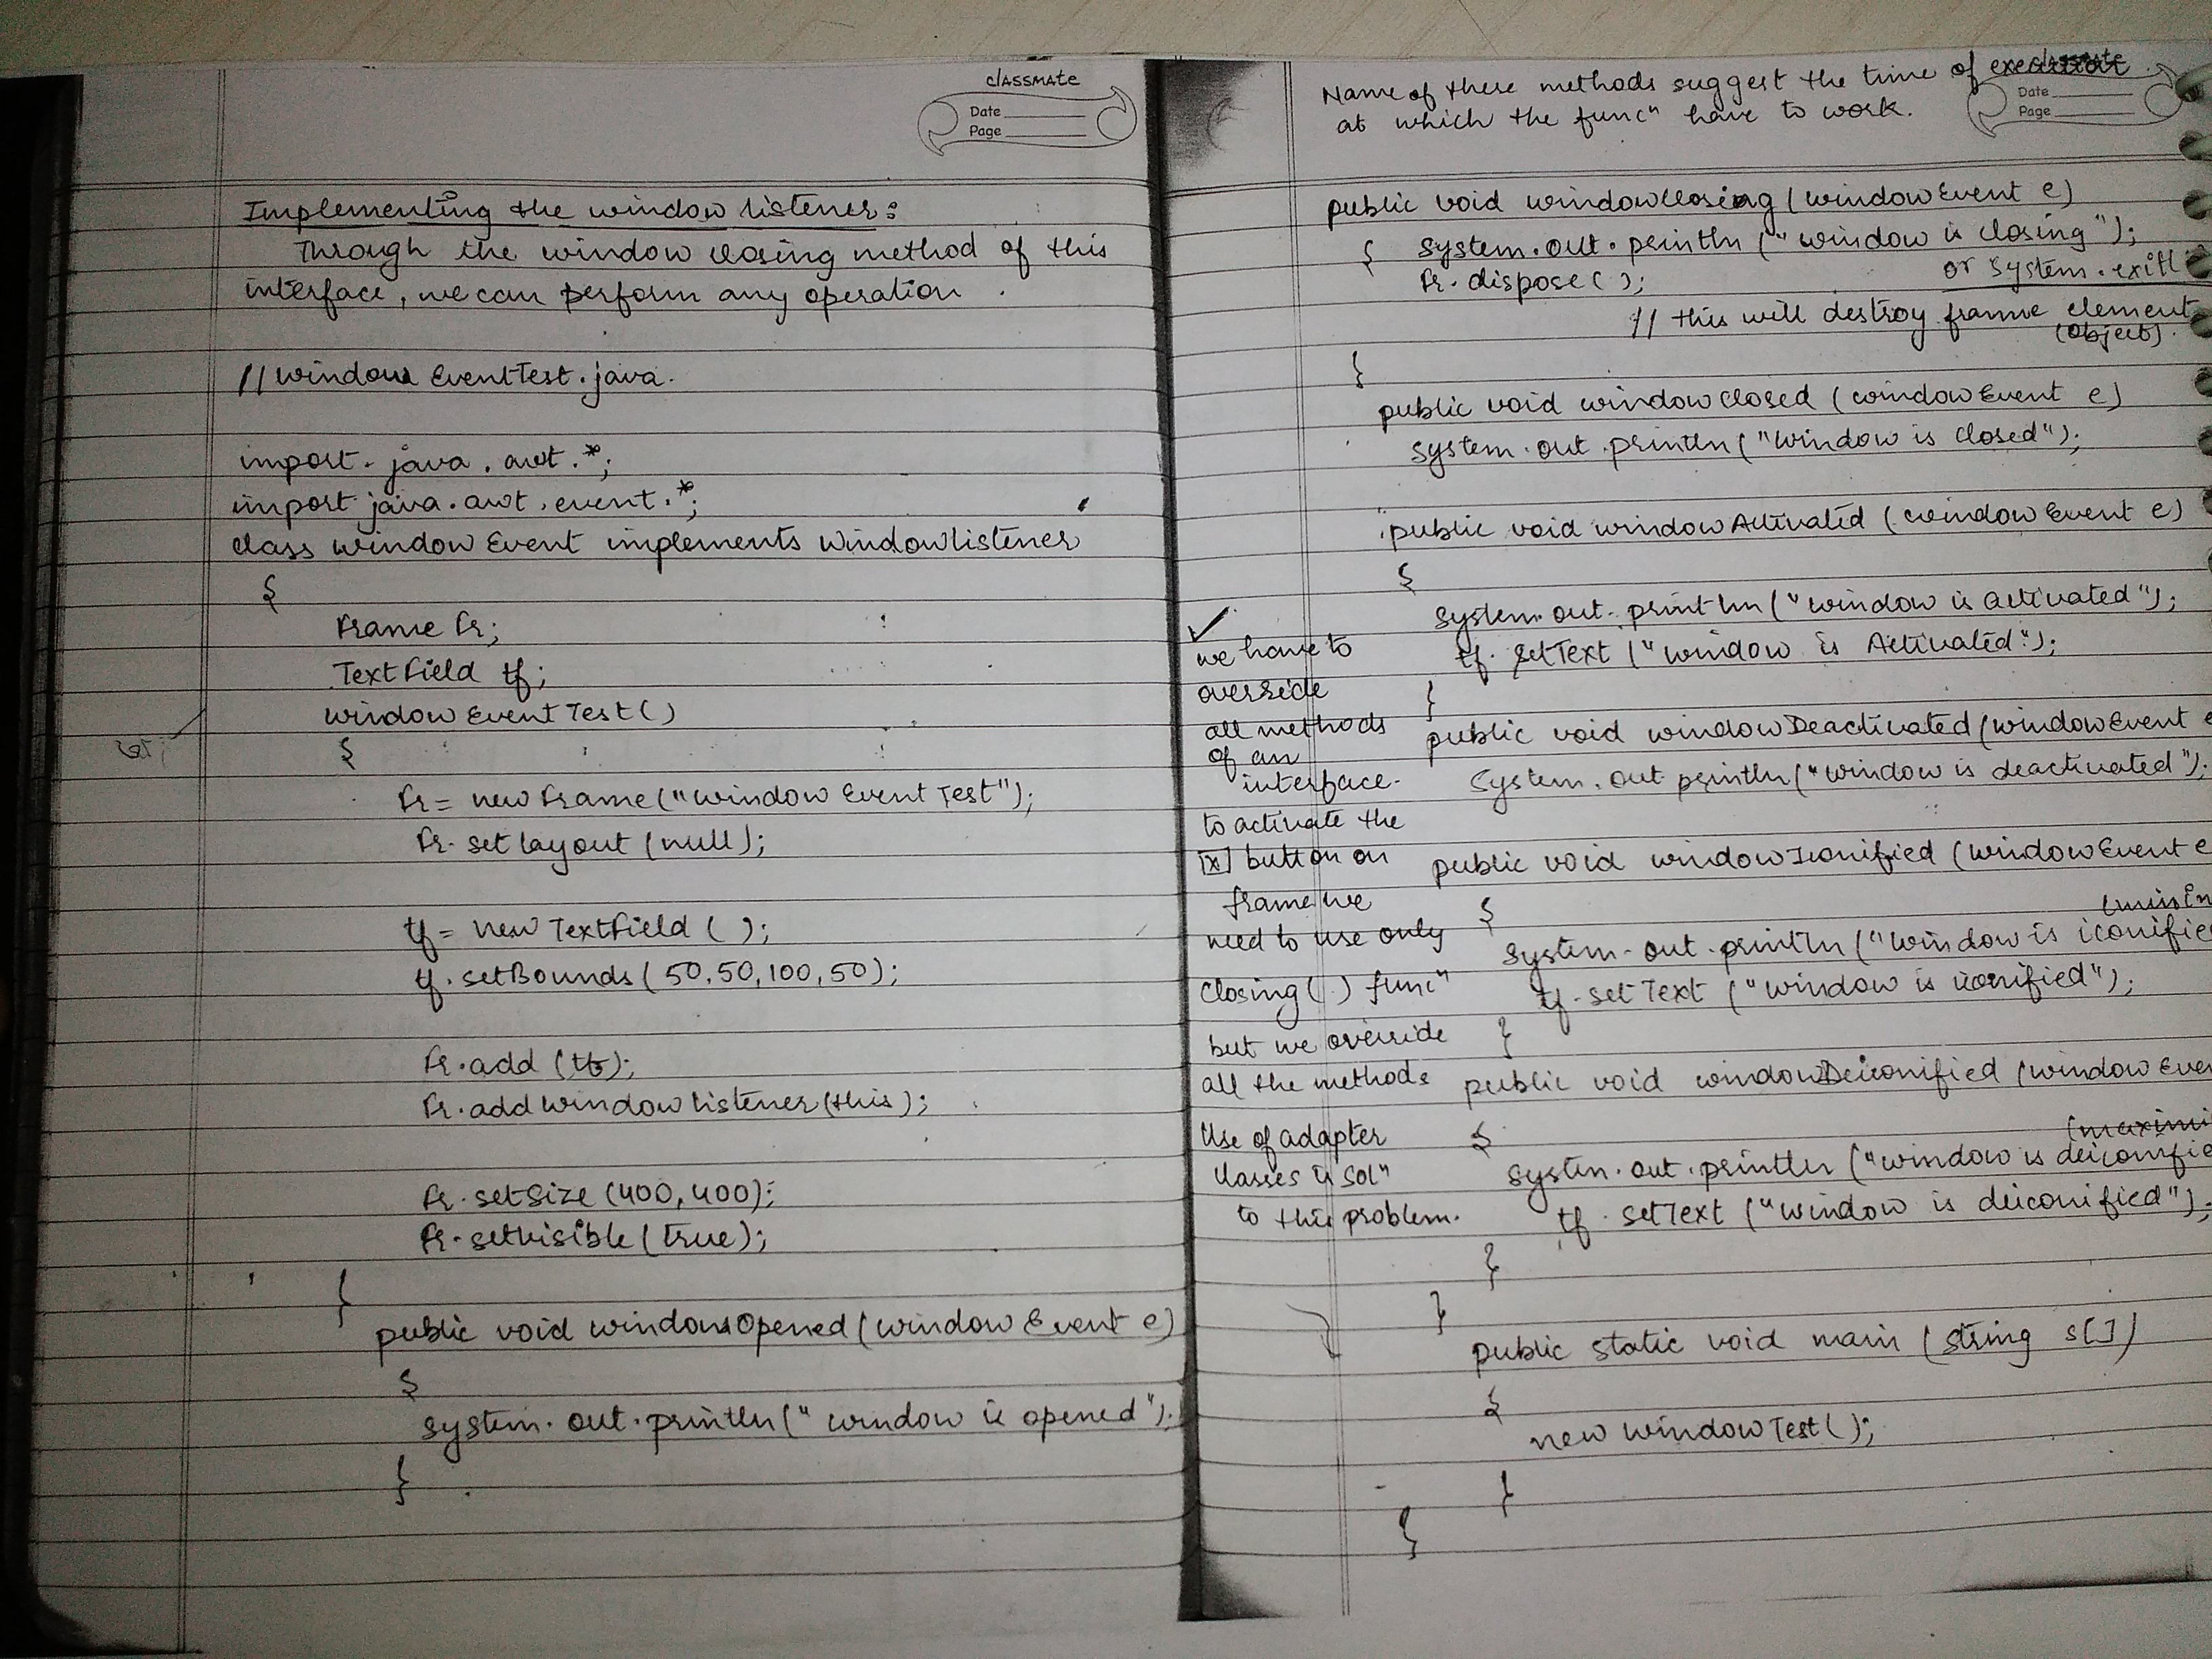 classmate
Date
Page
Implementing the window listener:
Through the window closing method of this
interface, we can perform any operation.
// window EventTest.java.
import. java.awt.*;
import java.awt.event.*;
class window Event implements windowlistener
{
Frame fr;
TextField tf;
window EventTest()
{
fr = new Frame("window Event Test");
fr. setlayout (null);
tf = new TextField ( );
tf. setBounds (50,50,100,50);
fr.add (tf);
fr.addwindow listener(this);
fr.setSize (400,400);
fr.setvisible (true);
}
public void windowOpened (window Event e)
{
system.out.println(" window is opened");
}
classmate
Date
Page
Name of these methods suggest the time of
at which the funcⁿ have to work.
public void windowclosing (windowEvent e)
{ system.out.println ("window is closing");
or system.exit(
fr.dispose( );
// this will destroy frame element
(object).
}
public void windowclosed (windowEvent e)
system.out.println ("window is closed");
public void windowActivated (windowEvent e)
{
system.out.println("window is activated");
tf. setText ("window is Activated");
}
public void windowDeactivated (windowEvent e
system.out println("window is deactivated");
public void windowIconified (windowEvent e
{
system.out.println ("window is iconifie
tf.setText ("window is iconified");
}
public void windowDeiconified (window Even
{
(maximi
system.out.println ("window is deiconifie
tf. setText ("window is deiconified");
}
}
public static void main (string s[])
{
new windowTest();
}
}
✓
we have to
override
all methods
of an
interface.
to activate the
[x] button on
frame we
need to use only
closing( ) funcⁿ
but we override
all the methods
Use of adapter
classes is solⁿ
to this problem.